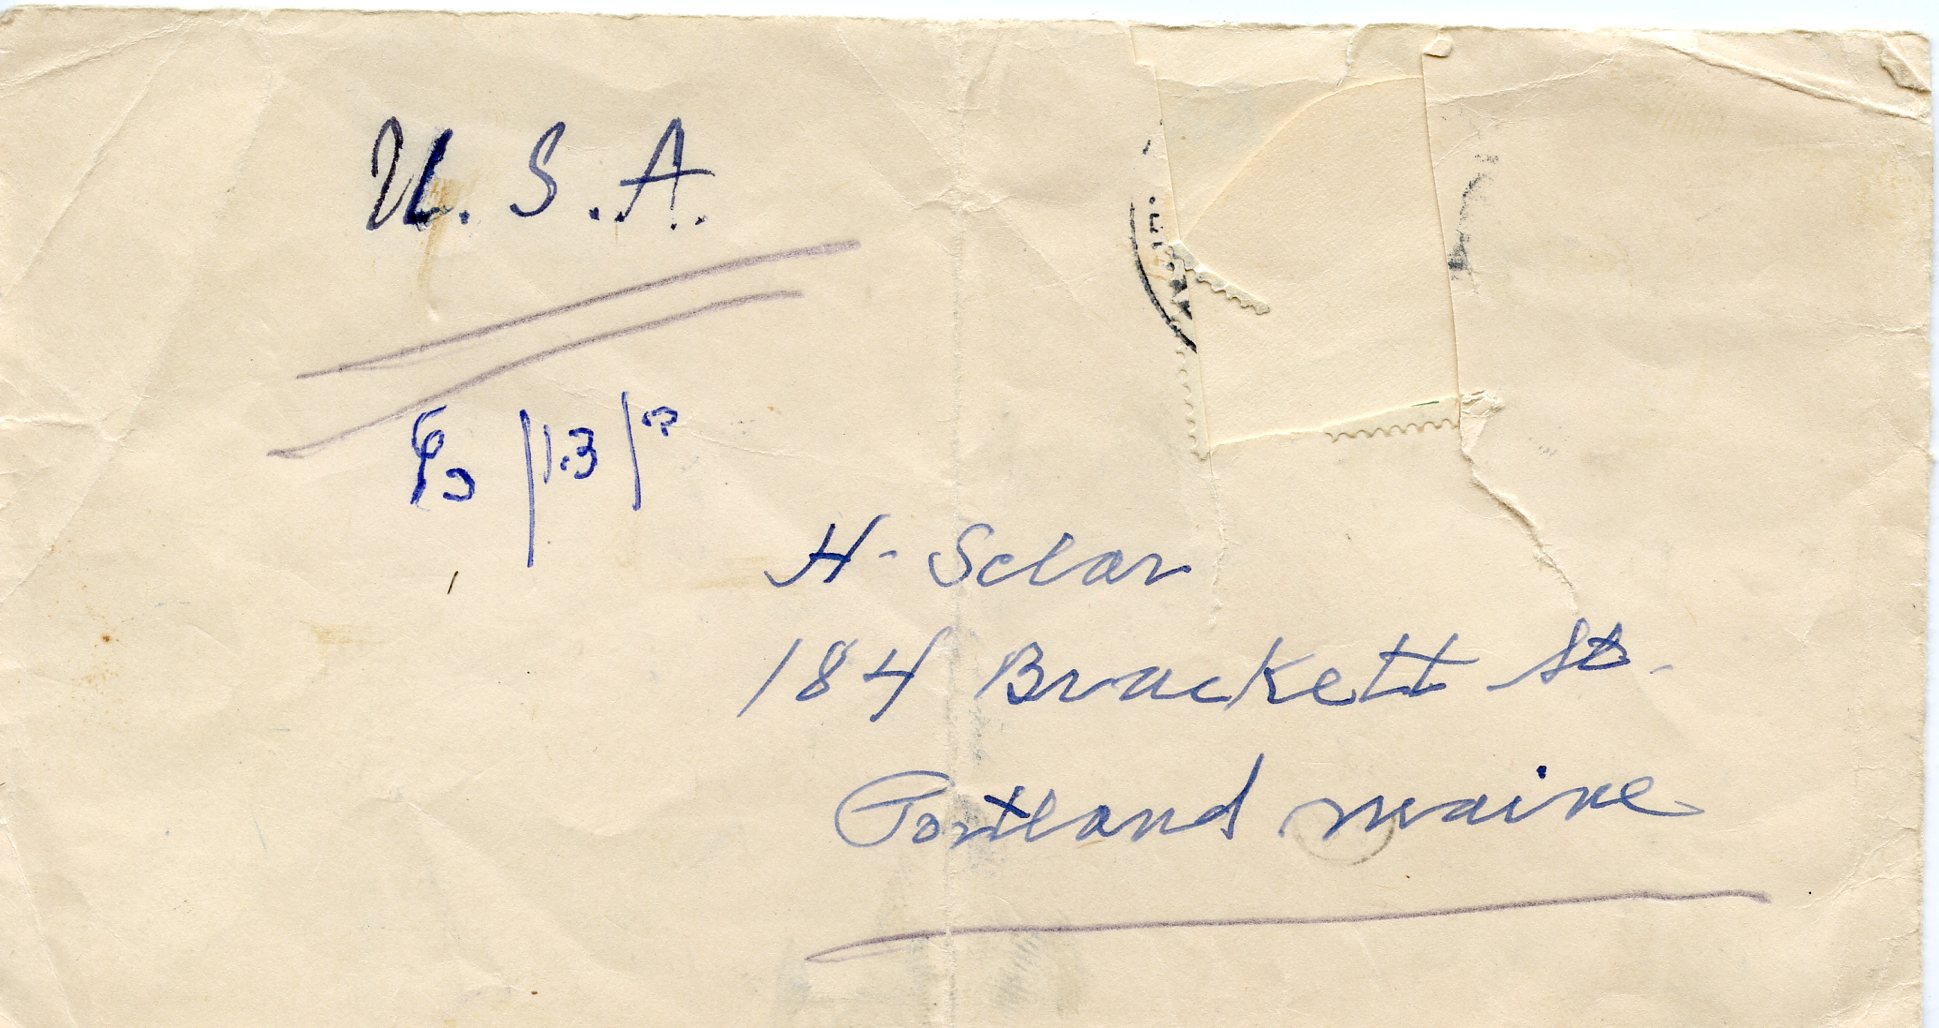 U.S.A.
H. Sclar
184 Brackett St.
Portland Maine